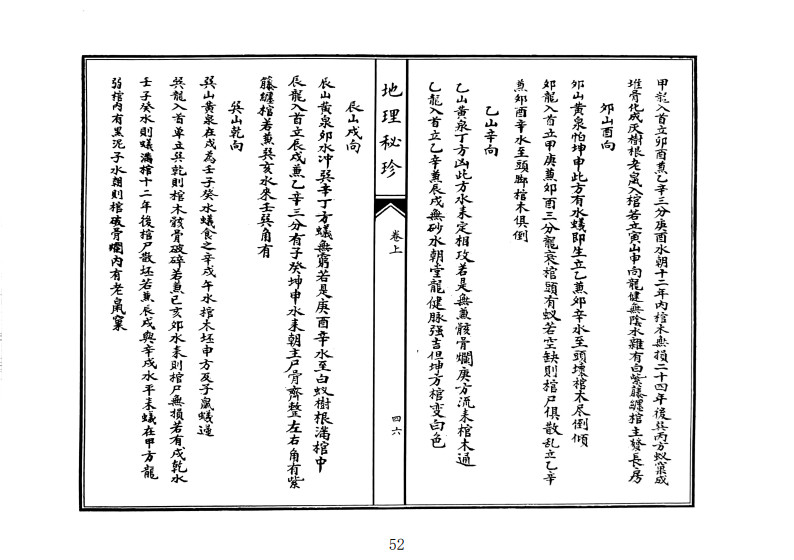 甲龍入首立卯酉蕪乙辛三分庚酉水朝十二年內棺木無損二十四年後巽丙方蟻窠成
堆骨化成灰樹根老鼠入棺若立寅山申向龍健無陰水雜有白紫藤纏棺主發長房
夘山酉向
夘山黄泉怕坤申此方有水蟻即生立乙蕪夘辛水至頭壞棺木尽倒傾
夘龍入首立甲庚蕪夘酉三分龍衰棺頭有蟻若空缺則棺尸俱散乱立乙辛
蕪夘酉辛水至頭脚棺木俱倒
乙山辛向
乙山黄泉丁方凶此方水来定相攻若是無蕪骸骨爛庚方流来棺木通
乙龍入首立乙辛蕪辰戌無砂水朝堂龍健脉强吉但坤方棺变白色
地理秘珍
卷上
四六
辰山戌向
辰山黄泉夘水冲巽辛丁方蟻無窮若是庚酉辛水至白蟻樹根滿棺中
辰龍入首立辰戌蕪乙辛三分有子癸坤申水来朝主尸骨齊整左右角有紫
籐纏棺若蕪巽亥水来壬巽角有
巽山乾向
巽山黄泉在戌為壬子癸水蟻食之辛戌午水棺木坯申方及子鼠蟻通
巽龍入首单立巽乾則棺木骸骨破碎若蕪己亥夘水来則棺尸無損若有戌乾水
壬子癸水則蟻滿棺十二年後棺尸散坯若蕪辰戌與辛戌水平来蟻在甲方龍
弱棺內有黑泥子水朝則棺破骨爛內有老鼠窠
52